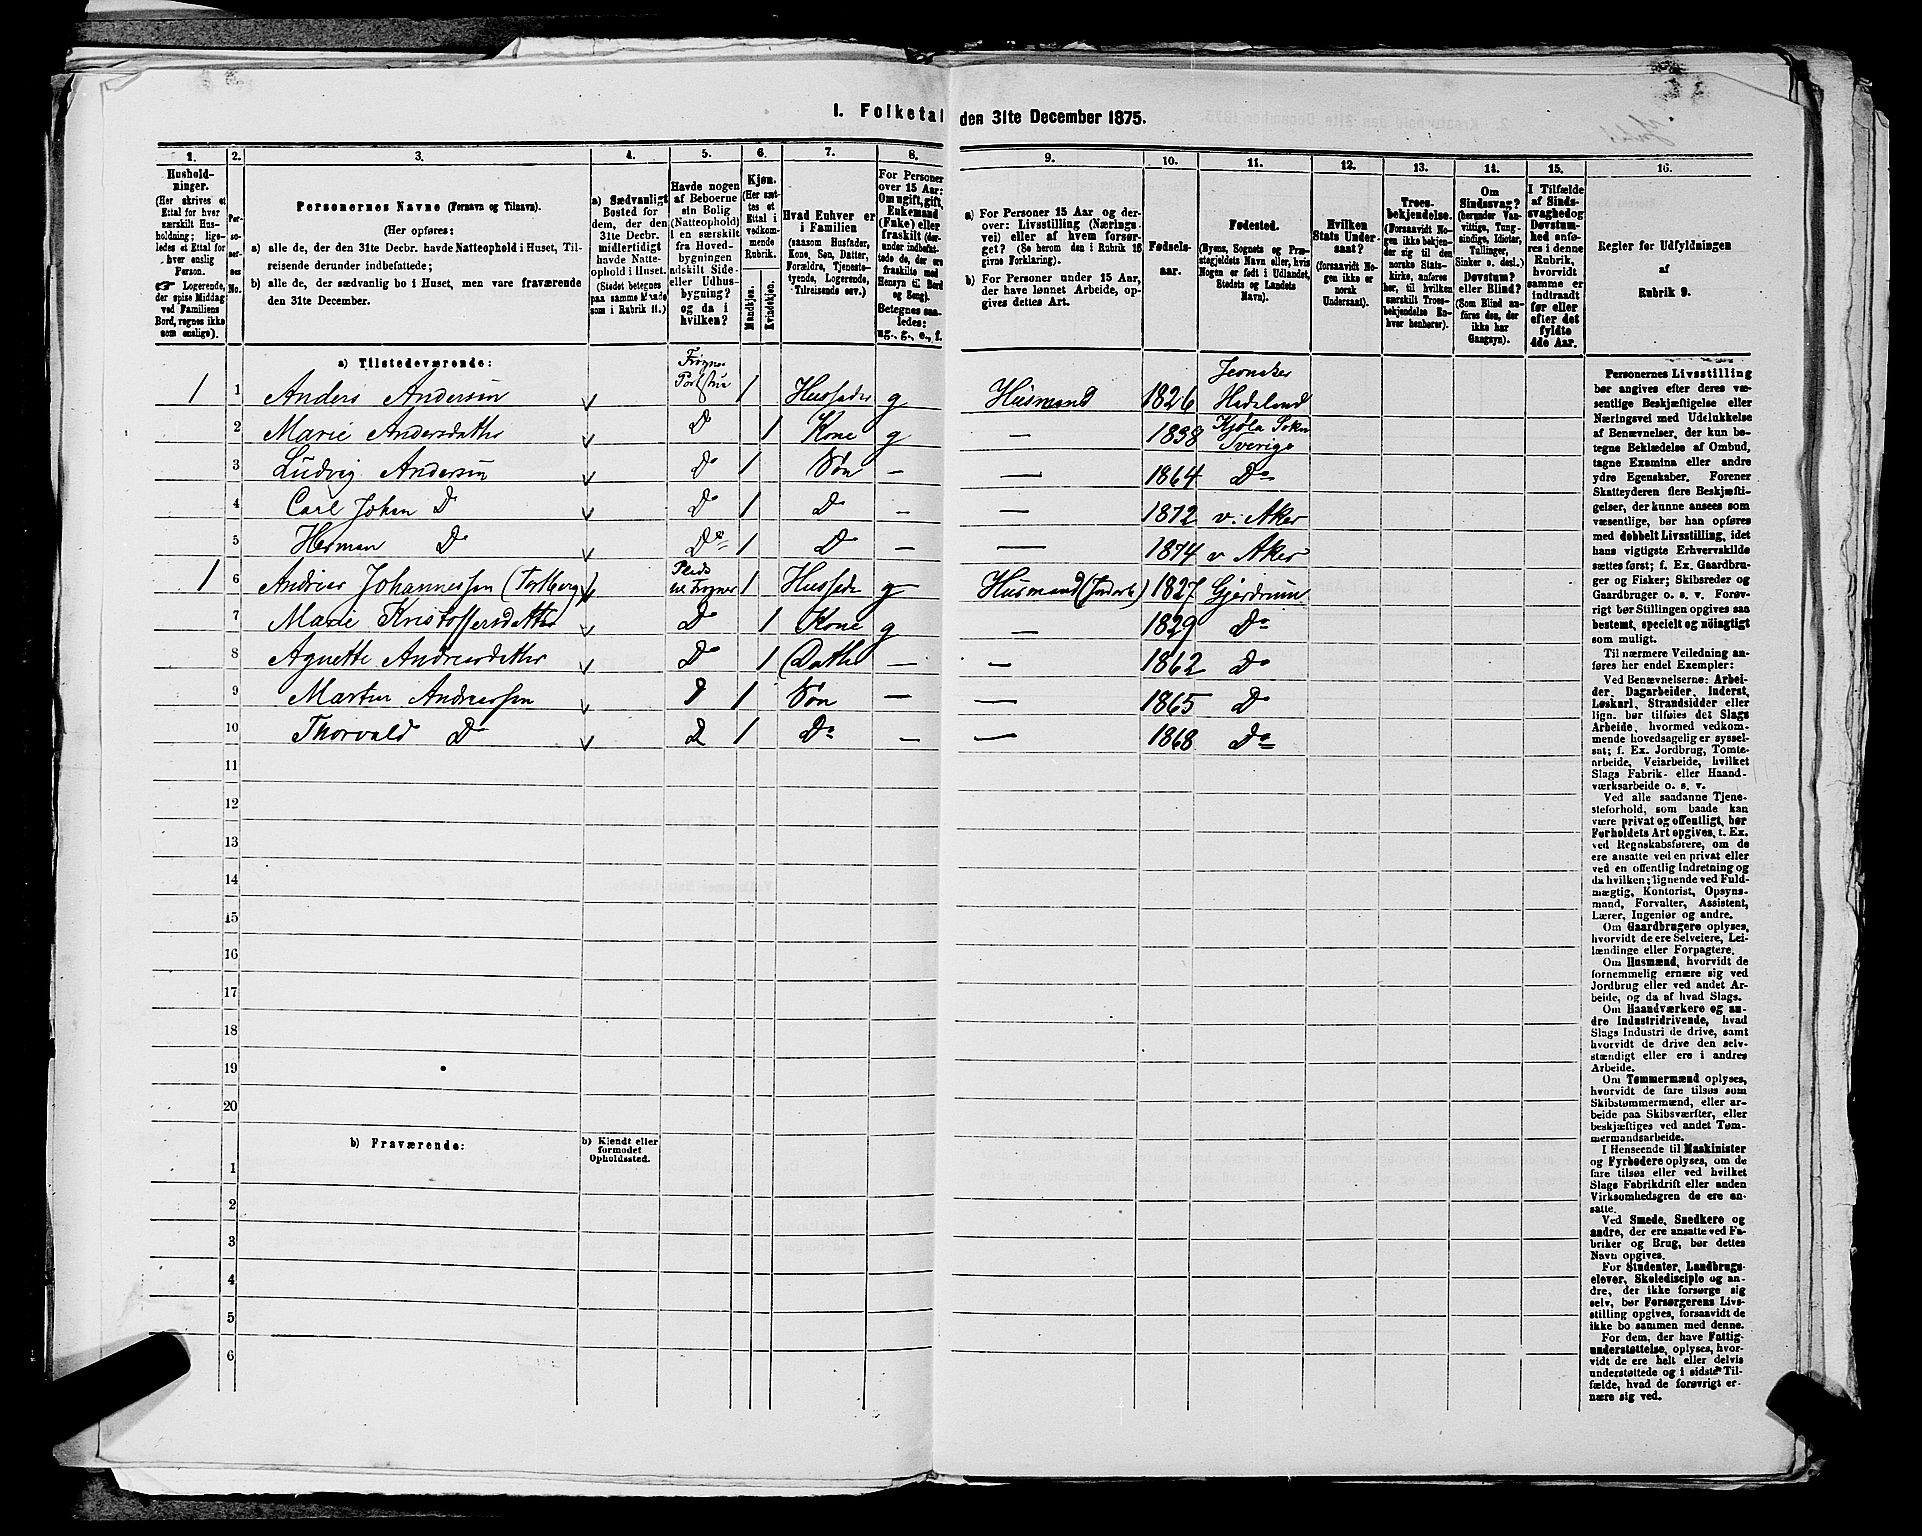 I. Folketal den 31te December 1875.
1. 2. 3. 4. 5. 6. 7. 8. 9. 10. 11. 12. 13. 14. 15. 16.
Husholdninger.
(Her skrives et
Ettal for hver
særskilt Husholdning; ligeledes et Ettal for
hver enslig
Person.
☞ Logerende,
der spise Middag
ved Familiens
Bord, regnes ikke
som enslige).
Personernes No.
Personernes Navne (Fornavn og Tilnavn).
(Her opføres:
a) alle de, der den 31te Decbr. havde Natteophold i Huset, Tilreisende derunder indbefattede;
b) alle de, der sædvanlig bo i Huset, men vare fraværende
den 31te December.
a) Sædvanligt
Bosted for
dem, der den
31te Decbr.
midlertidigt
havde Natteophold i Huset.
(Stedet betegnes
paa samme Maade
som i Rubrik 11.)
Havde nogen
af Beboerne
sin Bolig
(Natteophold)
i en særskilt
fra Hovedbygningen
adskilt Side-
eller Udhusbygning?
og da i
hvilken?
Kjøn.
(Her sættes et
Ettal i
vedkommende
Rubrik.
Mandkjøn.
Kvindekjøn.
Hvad Enhver er
i Familien
(saasom Husfader,
Kone, Søn, Datter,
Forældre, Tjenestetyende, Logerende,
Tilreisende osv.).
For Personer
over 15 Aar:
Om ugift, gift,
Enkemand
(Enke) eller
fraskilt (derunder indbefattede de, der ere
fraskilte med
Hensyn til Bord
og Seng).
Betegnes saaledes:
ug., g., e., f.
a) For Personer 15 Aar og derover: Livsstilling (Næringsvei) eller af hvem forsørget. (Se herom den i Rubrik 16
givne Forklaring).
b) For Personer under 15 Aar,
der have lønnet Arbeide, opgives dettes Art.
Fødselsaar.
Fødested.
(Byens, Sognets og Præstegjeldets Navn eller, hvis
Nogen er født i Udlandet,
Stedets og Landets
Navn).
Hvilken
Stats Undersaat?
(forsaavidt Nogen ikke er
norsk
Undersaat).
Troesbekjendelse.
(Forsaavidt Nogen ikke bekjender sig til den
norske Statskirke, anføres
her, til hvilken
særskilt Troesbekjendelse Enhver henhører).
Om
Sindssvag?
(herunder Vanvittige, Tungsindige, Idioter,
Tullinger,
Sinker o. desl.)
Døvstum?
eller Blind?
(Som Blind anføres den, der
ikke har
Gangsyn).
I Tilfælde
af Sindssvaghed og
Døvstumhed anføres i denne
Rubrik,
hvorvidt
samme er
indtraadt
før eller
efter det
fyldte
4de Aar.
Regler for Udfyldningen
af
Rubrik 9.
a) Tilstedeværende:
1 1 Anders Andersen 1 Husfader g Husmand 1826 Hadeland
2 Marie Andersdatter D 1 Kone g — 1838 Sogn Sverige
3 Ludvig Andersen Do 1 Søn — — 1864 Do
4 Carl Johan D D 1 D — — 1872 v. Aker
5 Herman D Do 1 D — — 1874 v Aker
1 6 Andreas Johannessen (Torlberg) 1 Husfader g Husmand 1827 Gjerdrum
7 Marie Kristoffersdatter D 1 Kone g — 1829 Do
8 Agnette Andreasdatter Do 1 Datter — — 1862 Do
9 Martin Andreassen D 1 Søn — — 1865 Do
10 Thorvald Do D 1 Do — — 1868 Do
11
12
13
14
15
16
17
18
19
20
b) Fraværende:
b) Kjendt eller
formodet
Opholdssted.
1
2
3
4
5
6
Personernes Livsstilling
bør angives efter deres væsentlige Beskjæftigelse eller
Næringsvei med Udelukkelse
af Benævnelser, der kun betegne Beklædelse af Ombud,
tagne Examina eller andre
ydre Egenskaber. Forener
Skatteyderen flere Beskjæftigelser, der kunne ansees som
væsentlige, bør han opføres
med dobbelt Livsstilling, idet
hans vigtigste Erhvervskilde
sættes først; f. Ex. Gaardbruger og Fisker; Skibsreder og
Gaardbruger o. s. v. Forøvrigt bør Stillingen opgives saa
bestemt, specielt og nøiagtigt
som muligt.
Til nærmere Veiledning anføres her endel Exempler:
Ved Benævnelserne: Arbeider, Dagarbeider, Inderst,
Løskarl, Strandsidder eller
lign. bør tilføies det Slags
Arbeide, hvormed vedkommende hovedsagelig er sysselsat; f. Ex. Jordbrug, Tomtearbeide, Veiarbeide, hvilket
Slags Fabrik- eller Haandværksarbeide o. s. v.
Ved alle saadanne Tjenesteforhold, som baade kan
være privat og offentligt, bør
Forholdets Art opgives, t. Ex.
ved Regnskabsførere, om de
ere ansatte ved en privat eller
ved en offentlig Indretning og
da hvilken; lignende ved Fuldmægtig, Kontorist, Opsynsmand, Forvalter, Assistent,
Lærer, Ingeniør og andre.
Om Gaardbrugere oplyses,
hvorvidt de ere Selveiere, Leilændinge eller Forpagtere.
Om Husmænd, hvorvidt de
fornemmelig ernære sig ved
Jordbrug eller ved andet Arbeide, og da af hvad Slags.
Om Haandværkere og andre Industridrivende, hvad
Slags Industri de drive, samt
hvorvidt de drive den selvstændigt eller ere i andres
Arbeide.
Om Tømmermænd oplyses,
hvorvidt de fare tilsøs som
Skibstømmermænd, eller arbeide paa Skibsværfter, eller
beskjæftiges ved andet Tømmermandsarbeide.
I Henseende til Maskinister
og Fyrbødere oplyses, om de
fare tilsøs eller ved hvilket
Slags Fabrikdrift eller anden
Virksomhedsgren de ere ansatte.
Ved Smede, Snedkere og
andre, der ere ansatte ved Fabriker og Brug, bør dettes
Navn opgives.
For Studenter, Landbrugselever, Skoledisciple og andre, der ikke forsørge sig
selv, bør Forsørgerens Livsstilling opgives, forsaavidt de
ikke bo sammen med denne.
For dem, der have Fattigunderstøttelse, oplyses, hvorvidt de ere helt eller delvis
understøttede og i sidste Tilfælde, hvad de forøvrigt ernære sig ved.